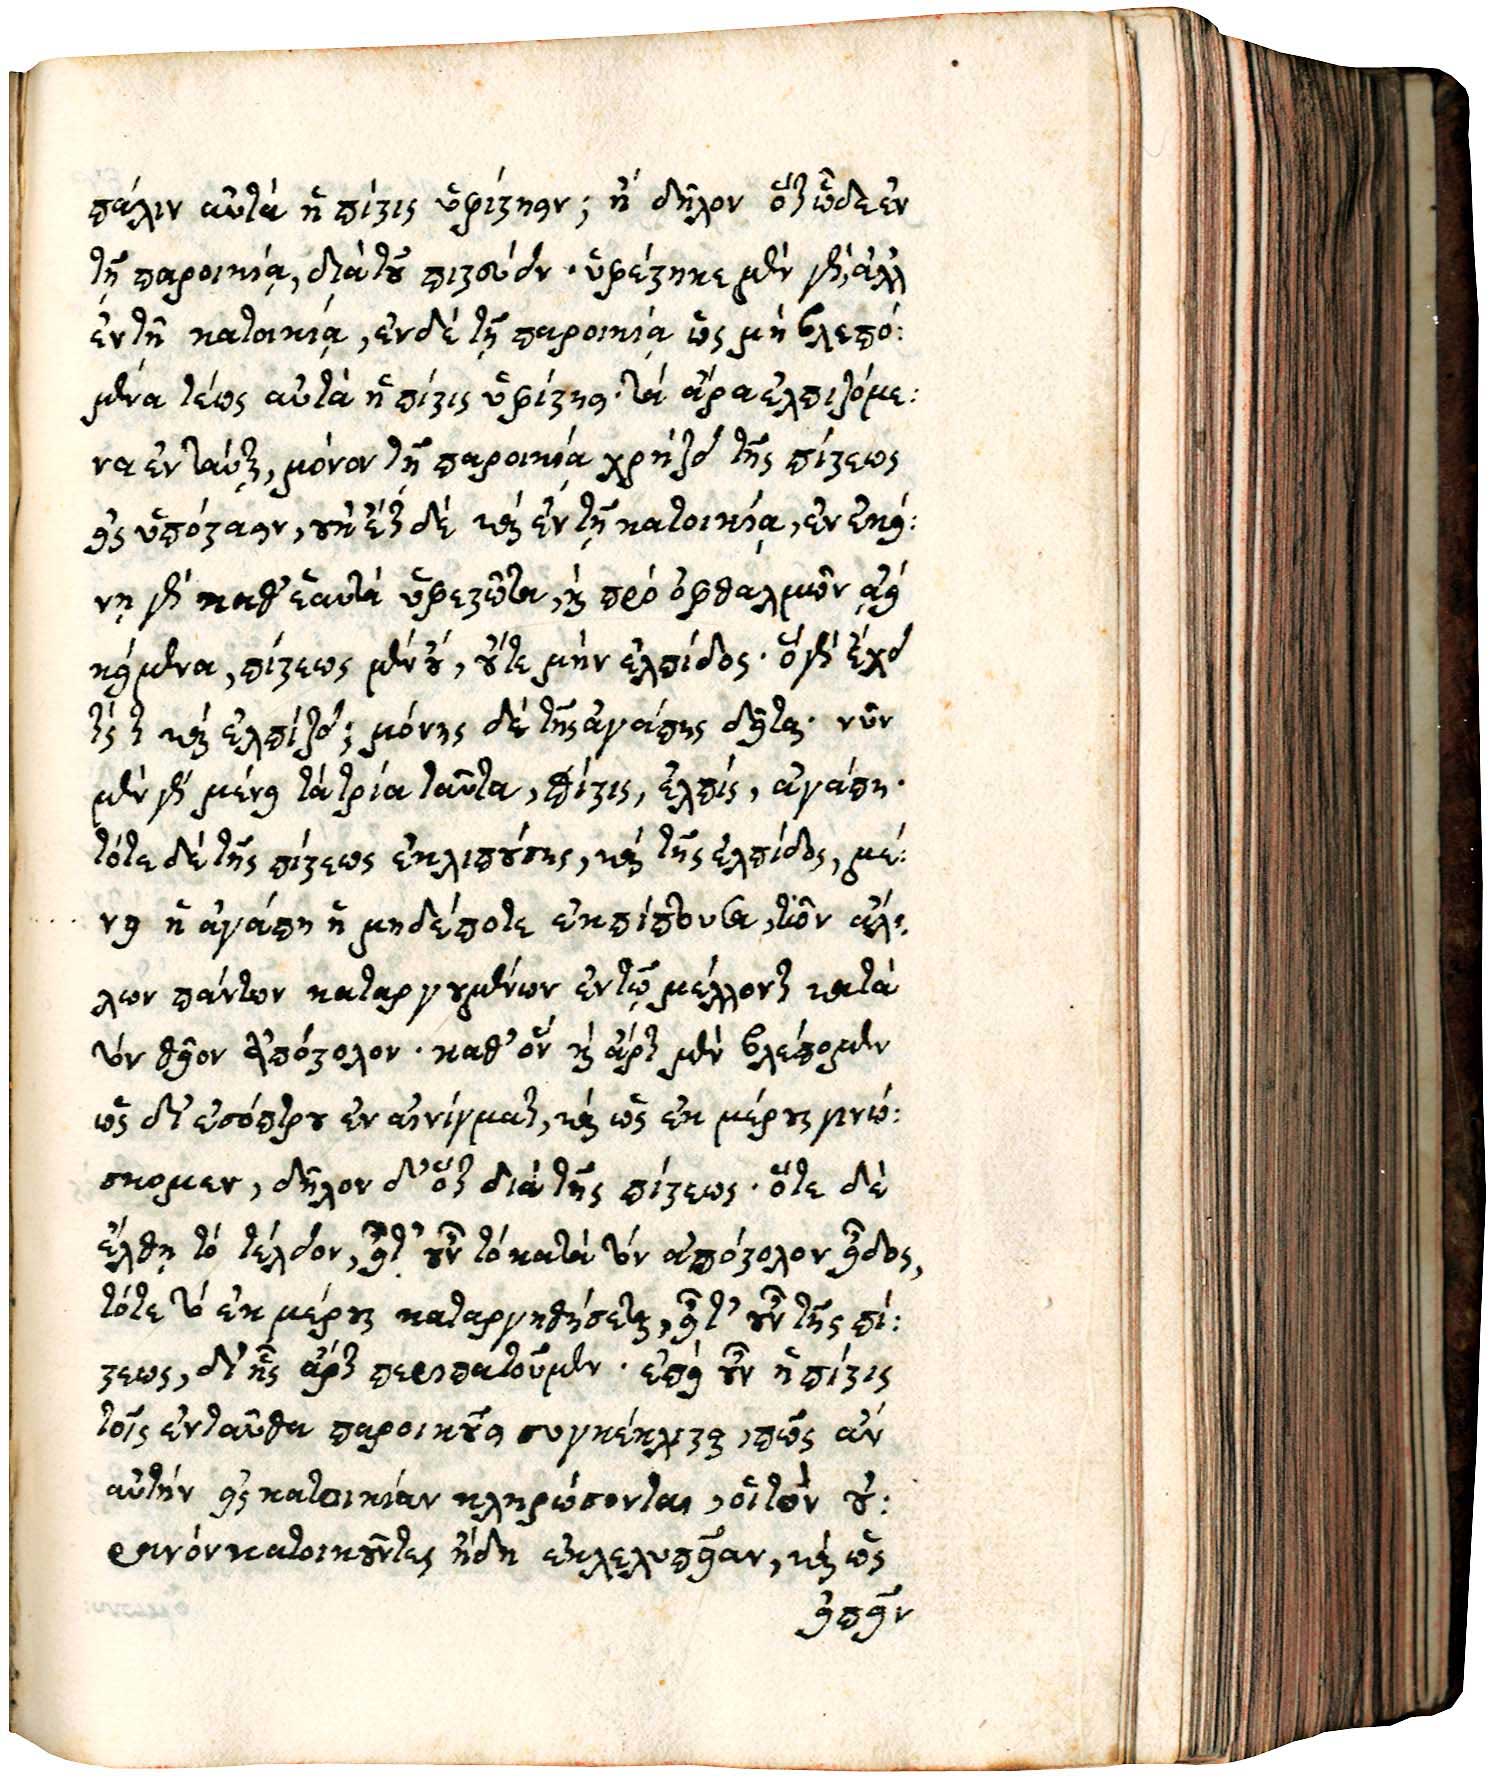 πάλιν αὐτὰ ἡ πίστις ὑφίστησιν; ἢ δῆλον ὅτι ὧδε ἐν
τῇ παροικίᾳ, διὰ τοῦ πιστεύειν· ὑφέστηκε μὲν γὰρ, ἀλλ
ἐν τῇ κατοικίᾳ, ἐν δὲ τῇ παροικίᾳ ὡς μὴ βλεπό:
μενα τέως αὐτὰ ἡ πίστις ὑφίστησι· τὰ ἄρα ἐλπιζόμε:
να ἐνταῦθα, μόνον τῇ παροικίᾳ χρῄζει τῆς πίστεως
εἰς ὑπόστασιν, οὐκέτι δὲ καὶ ἐν τῇ κατοικίᾳ, ἐν ἐκεί:
νῃ γὰρ καθ' ἑαυτὰ ὑφεστῶτα, καὶ πρὸ ὀφθαλμῶν ἀεὶ
κείμενα, πίστεως μὲν οὔ, οὔτε μὴν ἐλπίδος· ὃ γὰρ ἔχει
τίς τι καὶ ἐλπίζει; μόνης δὲ τῆς ἀγάπης δεῖται· νῦν
μὲν γὰρ μένει τὰ τρία ταῦτα, πίστις, ἐλπίς, ἀγάπη·
τότε δὲ τῆς πίστεως ἐκλιπούσης, καὶ τῆς ἐλπίδος, μέ:
νει ἡ ἀγάπη ἡ μηδέποτε ἐκπίπτουσα, τῶν ἄλ:
λων πάντων καταργουμένων ἐν τῷ μέλλοντι κατὰ
τὸν θεῖον ἀπόστολον· καθ' ὃν καὶ ἄρτι μὲν βλέπομεν
ὡς δι' ἐσόπτρου ἐν αἰνίγματι, καὶ ὡς ἐκ μέρους γινώ:
σκομεν, δῆλον δ' ὅτι διὰ τῆς πίστεως· ὅτε δὲ
ἔλθῃ τὸ τέλειον, εἴτ' οὖν τὸ κατὰ τὸν ἀπόστολον εἶδος,
τότε τὸ ἐκ μέρους καταργηθήσεται, εἴτ' οὖν τῆς πί:
στεως, δι' ἧς ἄρτι περιπατοῦμεν· ἐπεὶ οὖν ἡ πίστις
τοῖς ἐνταῦθα παροικοῦσι συγκέκλεισται, πῶς ἂν
αὐτὴν εἰς κατοικίαν κληρώσονται, οἱ τὸν οὐ:
ρανὸν κατοικοῦντες ἤδη ἐκλελυπεῖσαν, καὶ ὡς
εἰπεῖν